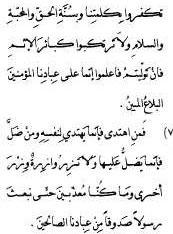 تكفروا بكلمتنا وسنّة الحقّ والمحبّة
والسلام ولا ترتكبوا كبائر الإثم
فإن تولّيتم فاعلموا إنّما على عبادنا المؤمنين
البلاغ المبين.
٧) فمن اهتدى فإنّما يهتدي لنفسه ومن ضلّ
فإنّما يضلّ عليها ولا تزر وازرة وزر
أخرى وما كنّا معذّبين حتّى نبعث
رسولاً صدوقاً من عبادنا الصالحين.